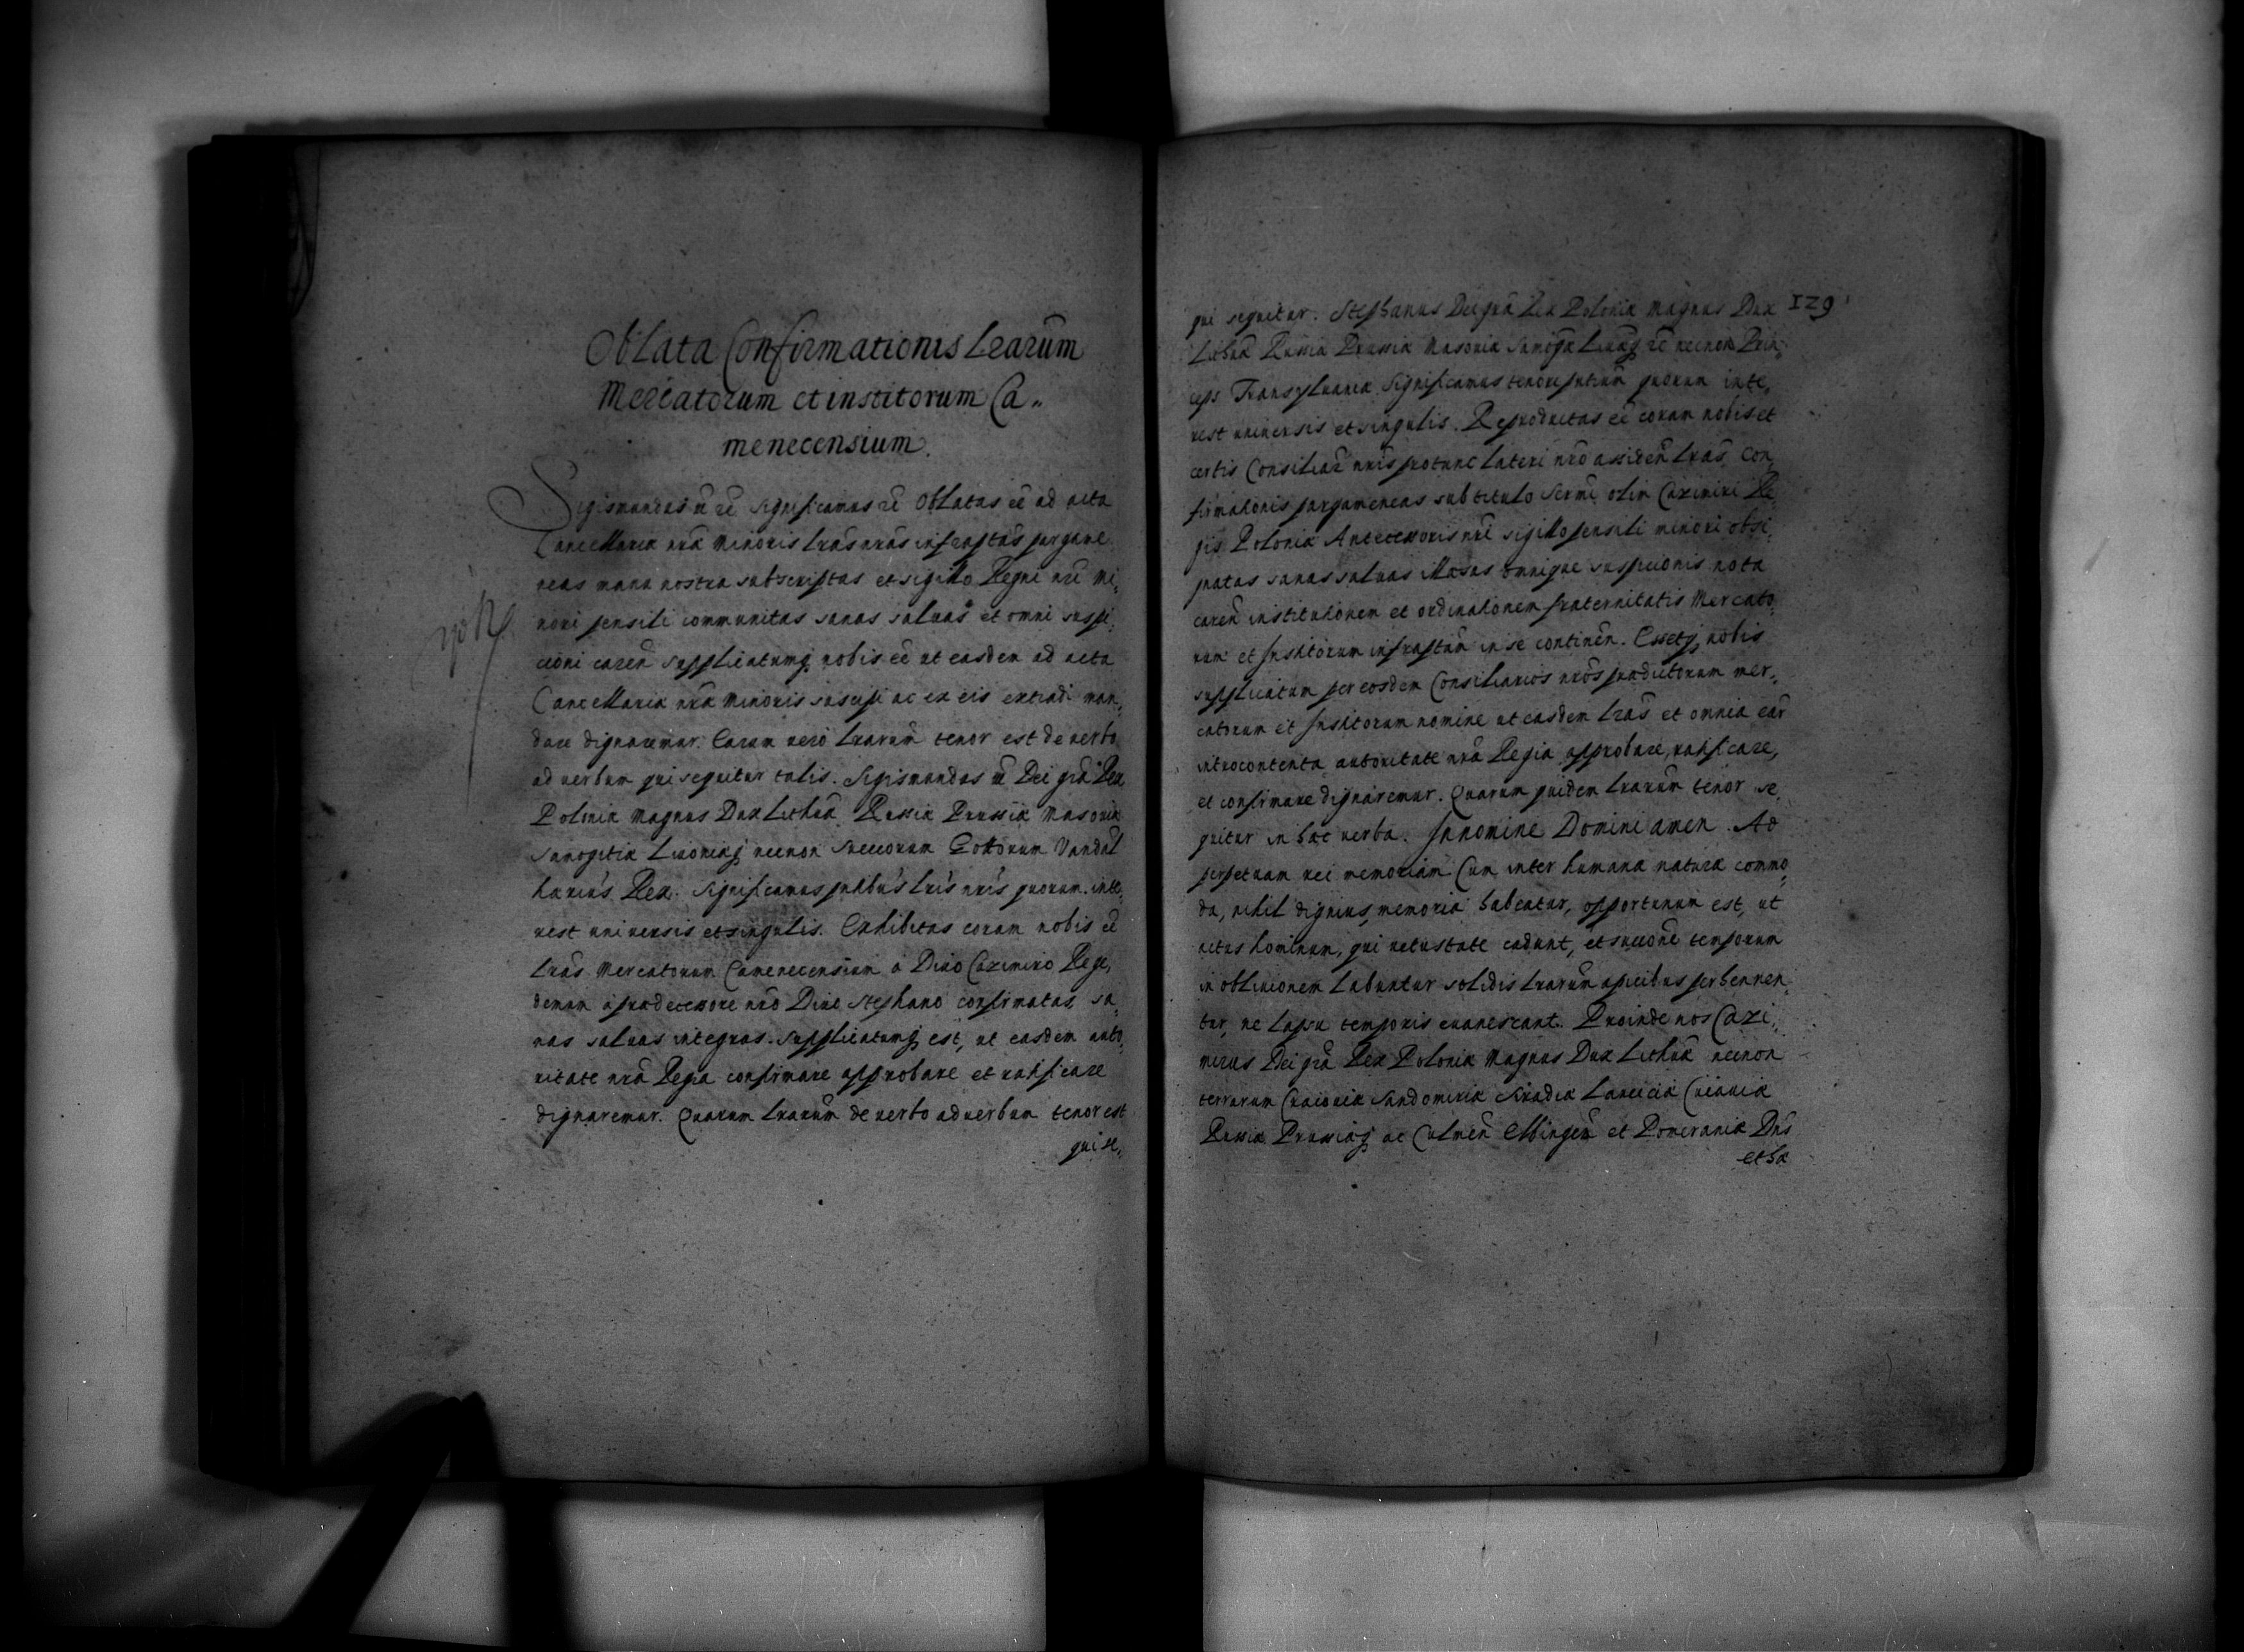 Oblata Confirmationis Lrarum
Mercatorum et institorum Ca„
menecensium.
Sigismundus III rc significamus rc Oblatas eē ad acta
Cancellariæ nræ Minoris lras nras infrascptas pargame
neas manu nostra subscriptas et sigillo Regni nri Mi„
nori pensili communitas sanas saluas et omni suspi„
cioni caren supplicatumq nobis eē ut easdem ad acta
Cancellariæ nræ Minoris suscipi ac ex eis extradi man„
dare dignaremur. Earum vero lrarum tenor est de verbo
ad verbum qui sequitur talis. Sigismundus III Dei gra Rex
Poloniæ Magnus Dux Lithuæ Russiæ Prussiæ Masouiæ
Samogitiæ Liuoniæq necnon Sueuorum Gottorum Vandal
hærius Rex. Significamus pntibus lris nris quorum inte„
rest uniuersis et singulis. Exhibitas coram nobis eē
lras Mercatorum Camenecensium a Diuo Cazimiro Rege,
demum a prædecessore nro Diuo Stephano confirmatas, sa„
nas saluas integras. Supplicatumq est, ut easdem auto„
ritate nra Regia confirmare approbare et ratificare
dignaremur. Quarum lrarum de verbo ad verbum tenor est
qui se„
qui sequitur. Stephanus Dei gra Rex Poloniæ Magnus Dux 129
Lithuæ Russiæ Prussiæ Masouiæ Samogæ Liuæq rc necnon Prin„
ceps Transyluaniæ. Significamus tenore pntium quorum inte„
rest uniuersis et singulis. Reproductas eē coram nobis et
certis Consiliar nris protunc lateri nro assiden lras Con„
firmationis pargameneas sub titulo Sermi olim Cazimiri Re„
gis Poloniæ Antecessoris nri sigillo pensili minori obsi„
gnatas sanas saluas illæsas omnique suspicionis nota
caren institutionem et ordinationem fraternitatis Mercato„
rum et Institorum infraptam in se continen. Essetq nobis
supplicatum per eosdem Consiliarios nros prædictorum mer„
catorum et Institorum nomine ut easdem lras et omnia ear
introcontenta autoritate nra Regia approbare, ratificare,
et confirmare dignaremur. Quarum quidem lrarum tenor se„
quitur in hæc verba. In nomine Domini amen. Ad
perpetuam rei memoriam. Cum inter humanæ naturæ commo„
da, nihil dignius memoria habeatur, opportunum est, ut
actus hominum, qui vetustate cadunt, et succone temporum
in obliuionem labuntur solidis lrarum apicibus perhennen„
tur, ne lapsu temporis euanescant. Proinde nos Cazi„
mirus Dei gra Rex Poloniæ Magnus Dux Lithuæ necnon
terrarum Cracouiæ Sandomiriæ Siradiæ Lanciciæ Cuiauiæ
Russiæ Prussiæq ac Culmen Elbingen et Pomeraniæ Dns
et hæ